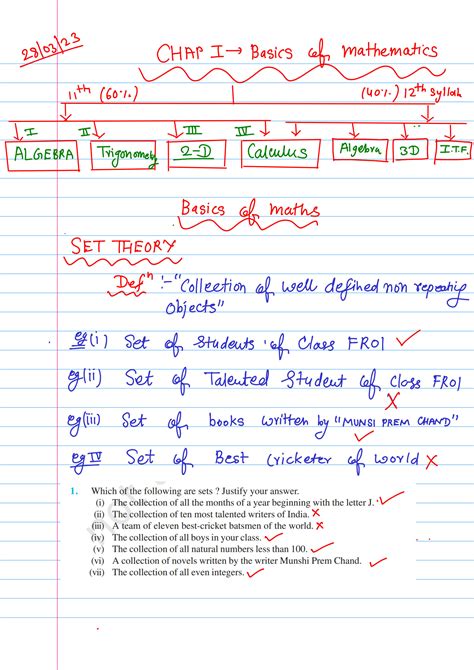 28/03/23
CHAP I → Basics of mathematics
11th (60%.) (40%.) 12th Syllab
I II III IV
ALGEBRA Trigonometry 2-D Calculus Algebra 3D I.T.F
Basics of maths
SET THEORY
Defn :- "Collection of well defined non repeating
Objects"
eg(i) Set of Students of Class FR01 ✓
eg(ii) Set of Talented Student of Class FR01
X
eg(iii) Set of books written by "MUNSI PREM CHAND"
✓
eg IV Set of Best Cricketer of world X
1. Which of the following are sets ? Justify your answer.
(i) The collection of all the months of a year beginning with the letter J. ✓
(ii) The collection of ten most talented writers of India. X
(iii) A team of eleven best-cricket batsmen of the world. X
(iv) The collection of all boys in your class. ✓
(v) The collection of all natural numbers less than 100. ✓
(vi) A collection of novels written by the writer Munshi Prem Chand. ✓
(vii) The collection of all even integers. ✓